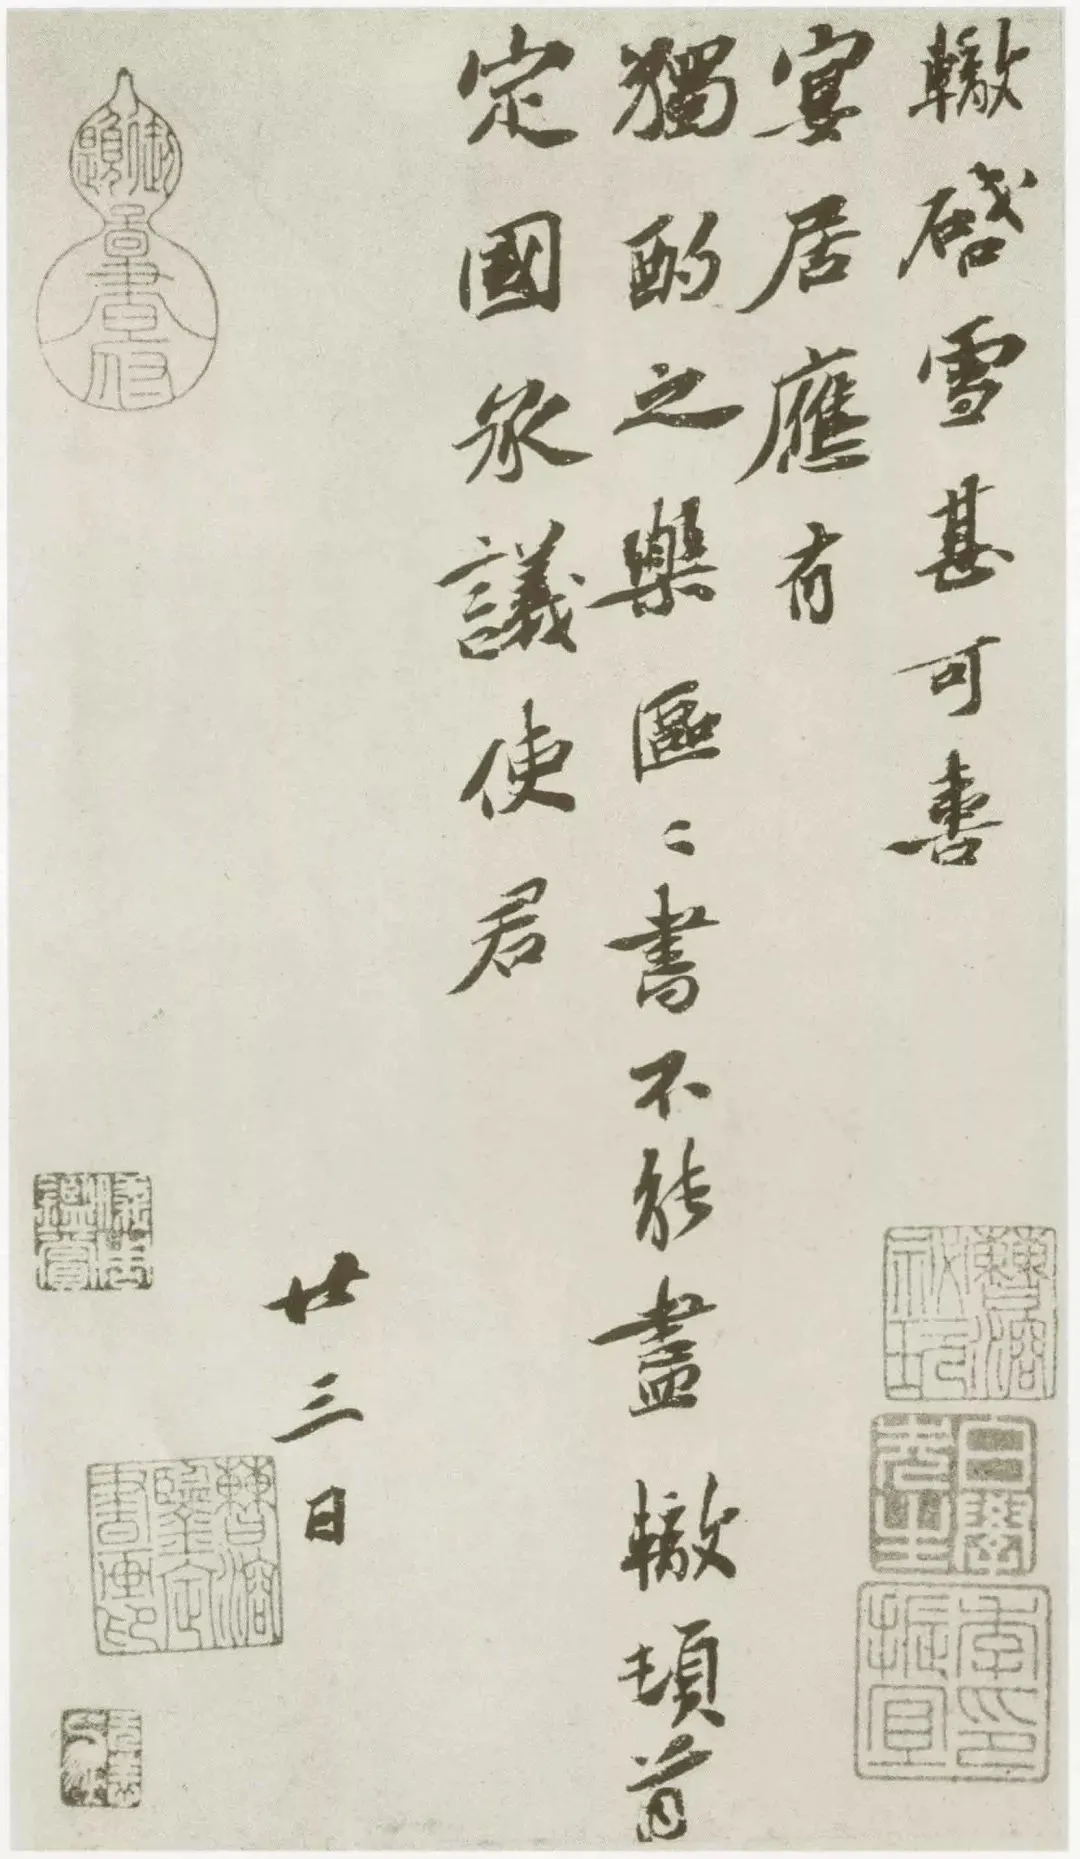 轍啓雪甚可喜
宴居應有
獨酌之樂區〻書不能盡轍頓首
定國承議使君
廿三日
李印振宜